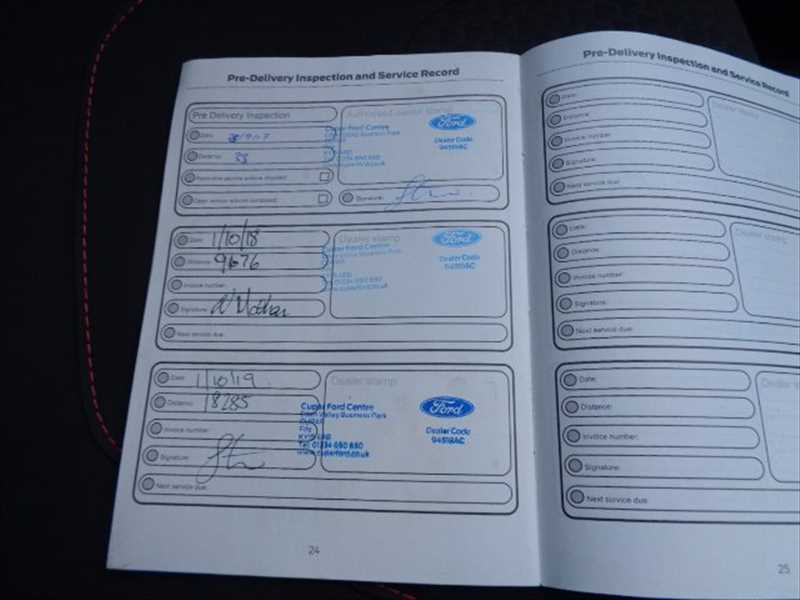 Pre-Delivery Inspection and Service Record
Pre Delivery Inspection
Authorised dealer stamp
Date:
Distance:
Cupar Ford Centre
Ford
Dealer Code
94518AC
Signature:
Date: 1/10/18
Distance: 9676
Invoice number:
Signature:
Next service due:
Dealer stamp
Cupar Ford Centre
Ford
Dealer Code
94518AC
Date: 1/10/19
Distance: 18285
Invoice number:
Signature:
Next service due:
Dealer stamp
Cupar Ford Centre
Eden Valley Business Park
CUPAR
Fife
Tel: 01334 650 880
www.cuparford.co.uk
Ford
Dealer Code
94518AC
24
Pre-Delivery Inspection and Service Record
Date:
Distance:
Invoice number:
Signature:
Next service due:
Dealer stamp
Date:
Distance:
Invoice number:
Signature:
Next service due:
Dealer
Date:
Distance:
Invoice number:
Signature:
Next service due:
Dealer st
25